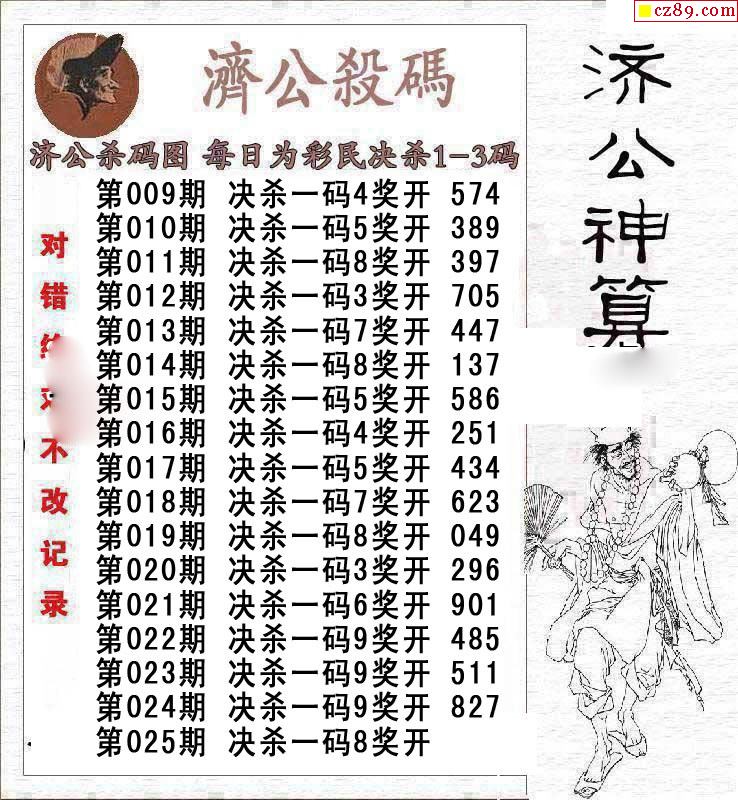 cz89.com
濟公殺碼
济公杀码图 每日为彩民决杀1-3码
第009期 决杀一码4奖开 574
第010期 决杀一码5奖开 389
第011期 决杀一码8奖开 397
第012期 决杀一码3奖开 705
第013期 决杀一码7奖开 447
第014期 决杀一码8奖开 137
第015期 决杀一码5奖开 586
第016期 决杀一码4奖开 251
第017期 决杀一码5奖开 434
第018期 决杀一码7奖开 623
第019期 决杀一码8奖开 049
第020期 决杀一码3奖开 296
第021期 决杀一码6奖开 901
第022期 决杀一码9奖开 485
第023期 决杀一码9奖开 511
第024期 决杀一码9奖开 827
第025期 决杀一码8奖开
对错不改记录
济公神算